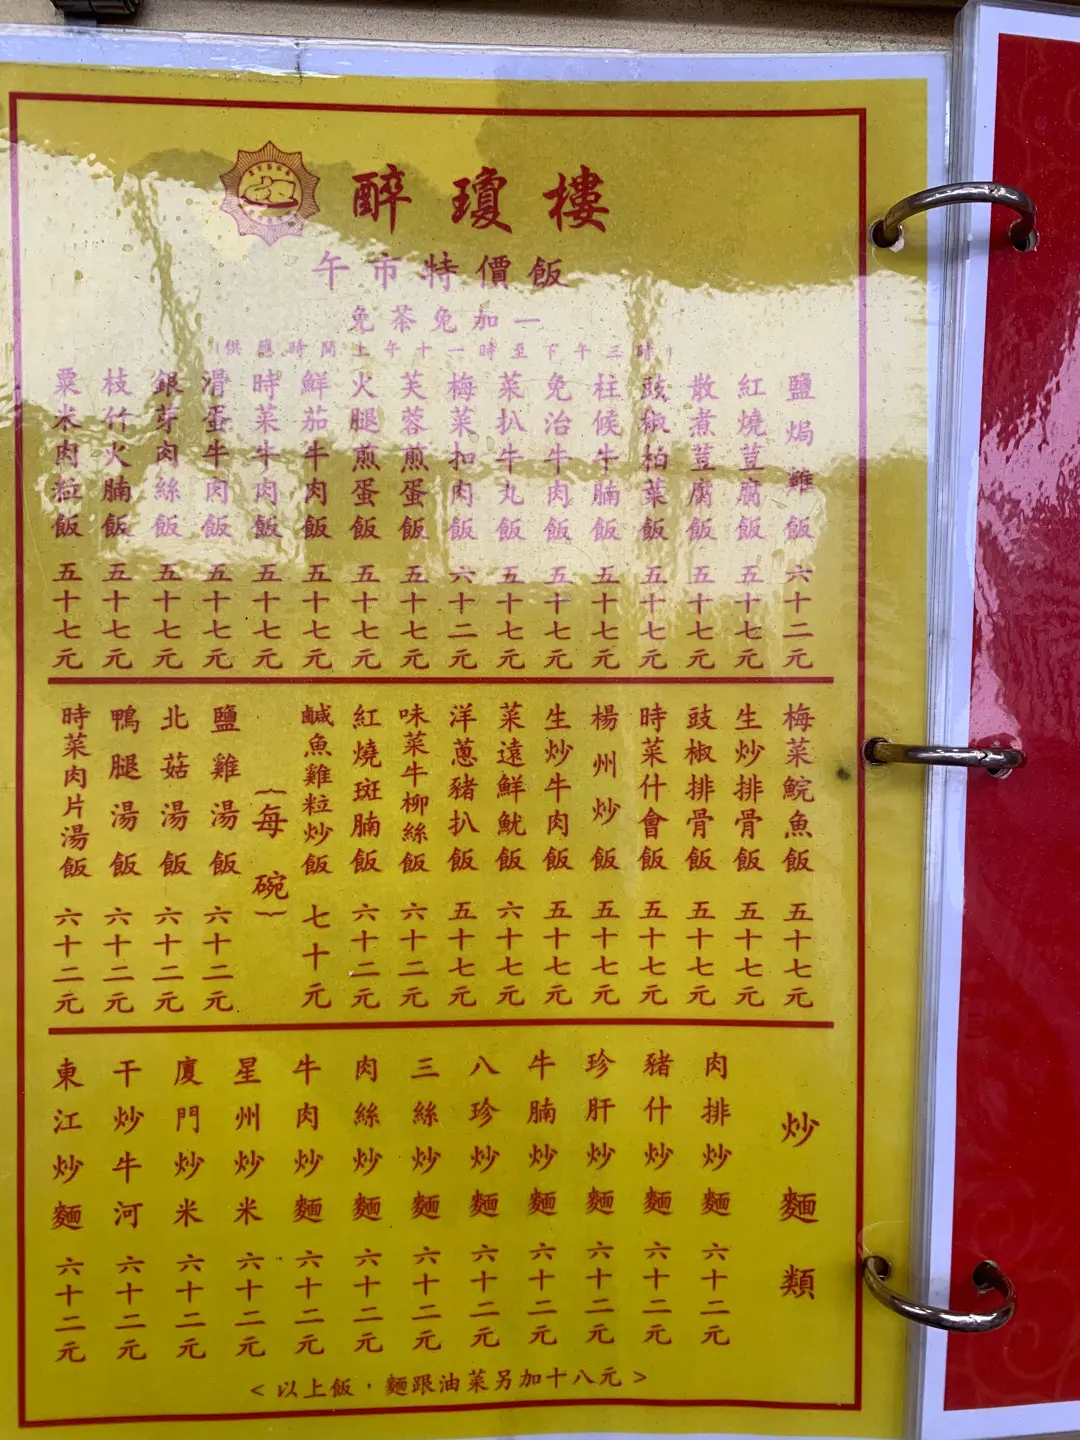 醉瓊樓
午市特價飯
免茶免加一
(供應時間上午十一時至下午三時)
鹽焗雞飯 六十二元
紅燒荳腐飯 五十七元
散煮荳腐飯 五十七元
豉椒柏葉飯 五十七元
柱候牛腩飯 五十七元
免治牛肉飯 五十七元
菜扒牛丸飯 五十七元
梅菜扣肉飯 六十二元
芙蓉煎蛋飯 五十七元
火腿煎蛋飯 五十七元
鮮茄牛肉飯 五十七元
時菜牛肉飯 五十七元
滑蛋牛肉飯 五十七元
銀芽肉絲飯 五十七元
枝竹火腩飯 五十七元
粟米肉粒飯 五十七元
梅菜鯇魚飯 五十七元
生炒排骨飯 五十七元
豉椒排骨飯 五十七元
時菜什會飯 五十七元
楊州炒飯 五十七元
生炒牛肉飯 五十七元
菜遠鮮魷飯 六十七元
洋蔥豬扒飯 五十七元
味菜牛柳絲飯 六十二元
紅燒斑腩飯 六十二元
鹹魚雞粒炒飯 七十元
(每碗)
鹽雞湯飯 六十二元
北菇湯飯 六十二元
鴨腿湯飯 六十二元
時菜肉片湯飯 六十二元
炒麵類
肉排炒麵 六十二元
豬什炒麵 六十二元
珍肝炒麵 六十二元
牛腩炒麵 六十二元
八珍炒麵 六十二元
三絲炒麵 六十二元
肉絲炒麵 六十二元
牛肉炒麵 六十二元
星州炒米 六十二元
廈門炒米 六十二元
干炒牛河 六十二元
東江炒麵 六十二元
<以上飯．麵跟油菜另加十八元>